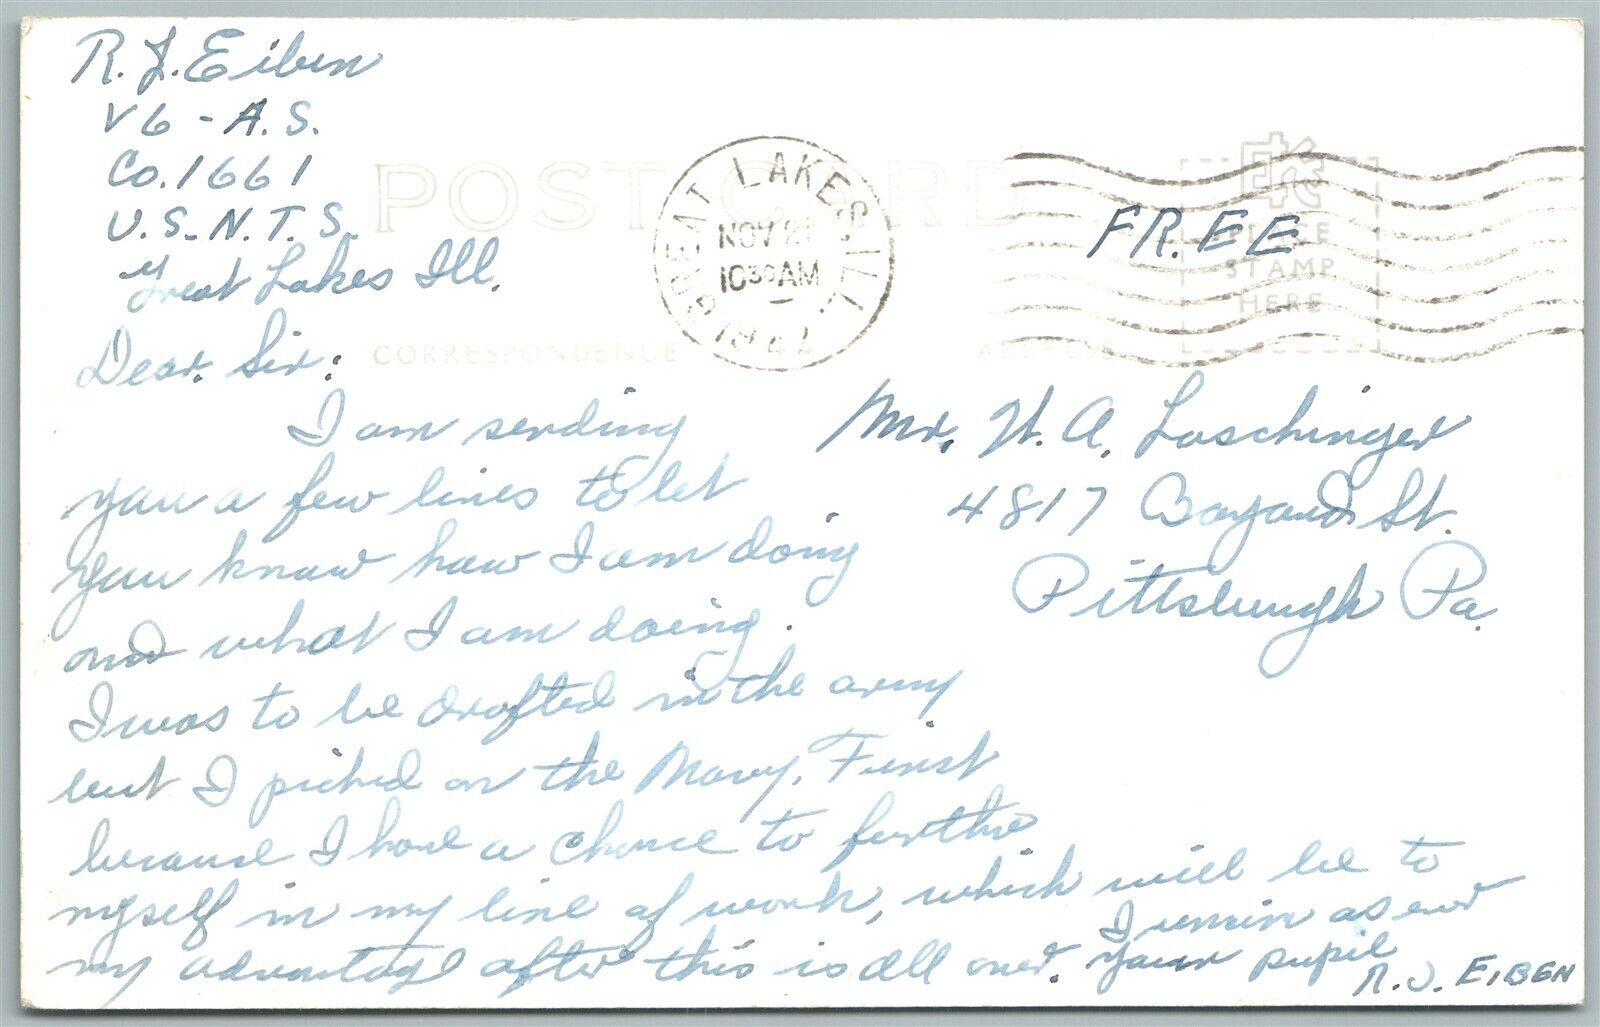 R. J. Eiben
V6 - A.S.
Co. 1661
U.S.N.T.S.
Great Lakes Ill.
POST CARD
CORRESPONDENCE
GREAT LAKES, ILL.
NOV 21
10 30 AM
FREE
PLACE
STAMP
HERE
Dear Sir:
I am sending
you a few lines to let
you know how I am doing
and what I am doing.
I was to be drafted in the army
but I picked on the Navy. First
because I have a chance to further
myself in my line of work, which will be to
my advantage after this is all over.
I remain as ever
your pupil
R. J. EIBEN
Mr. H. A. Loschinger
4817 Bayard St.
Pittsburgh Pa.